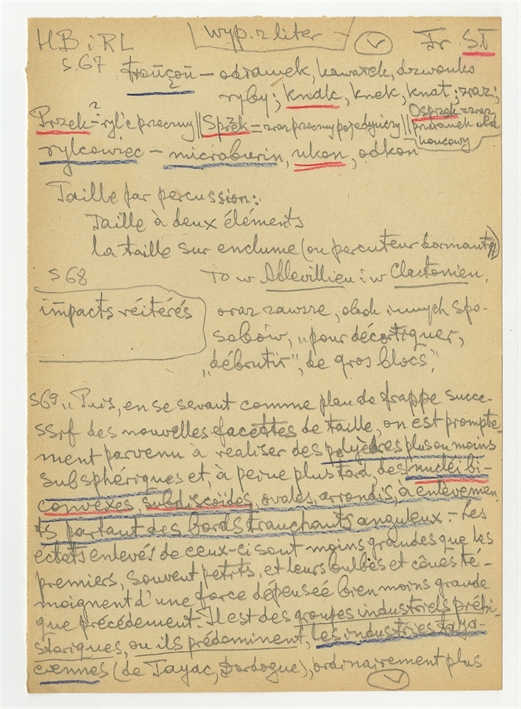 HB i RL wyp. z liter Fr ST
s. 67 tronçon – odramek, kawałek, dzwonko
ryby; knak, knek, knat; zraz;
Przek = rylec przecmy || Sprzék = zraz przecmy pojedyńczy || Osprzek = zraz
przramek
koncowy
rylcowiec – microburin, ukon, odkon
Taille par percussion:
Taille à deux éléments
la taille sur enclume (ou percuteur dormant)
s 68 To w Abbevillien i w Clactonien.
impacts réitérés oraz zawsze, obok innych spo-
sobów, „pour décortiquer,
„débrutir", de gros blocs,"
s 69 „Puis, en se servant comme plan de frappe succe-
ssif des nouvelles facettes de taille, on est prompte
ment parvenu à realiser des polyèdres plus ou moins
subsphériques et, à peine plus tard des nucléi bi-
convexes, subdiscoides, ovales, arrondis, à enlèvemen-
ts partant des bords tranchants anguleux. – Les
éclats enlevés de ceux-ci sont moins grandes que les
premiers, souvent petits, et leurs bulbes et cônes té-
moignent d'une force dépensée bien moins grande
que précedement. Il est des groupes industriels préhi-
storiques, ou ils prédominent, les industries taya-
ciennes (de Tayac, Dordogne), ordinairement plus